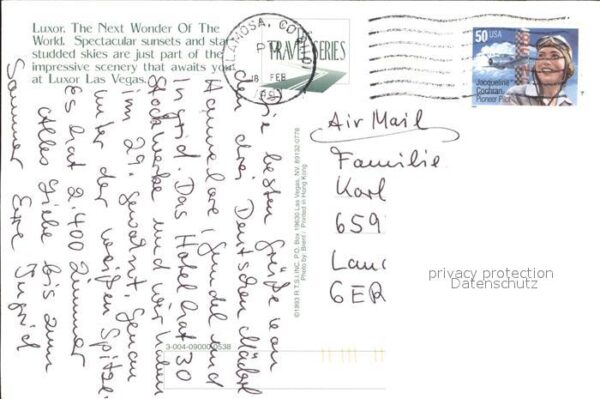 Luxor. The Next Wonder Of The
World. Spectacular sunsets and star
studded skies are just part of the
impressive scenery that awaits you
at Luxor Las Vegas.
ALAMOSA, COLO
PM
18 FEB
TRAVEL SERIES
50 USA
Jacqueline
Cochran
Pioneer Pilot
Die besten Grüße von
den drei Deutschen Mädel
Hannelore, Gundel und
Ingrid. Das Hotel hat 30
Stockwerke und wir haben
im 29. gewohnt. Genau
unter der weißen Spitze.
Es hat 2.400 Zimmer
Alles Liebe bis zum
Sommer Eure Ingrid
©1993 R.T.S.I. INC. P.O. Box 19630 Las Vegas, NV. 89132-0776
Photo by Brent - Printed in Hong Kong
3-004-09000-0538
Air Mail
Familie
Karl
659
Lauc
GER
privacy protection
Datenschutz